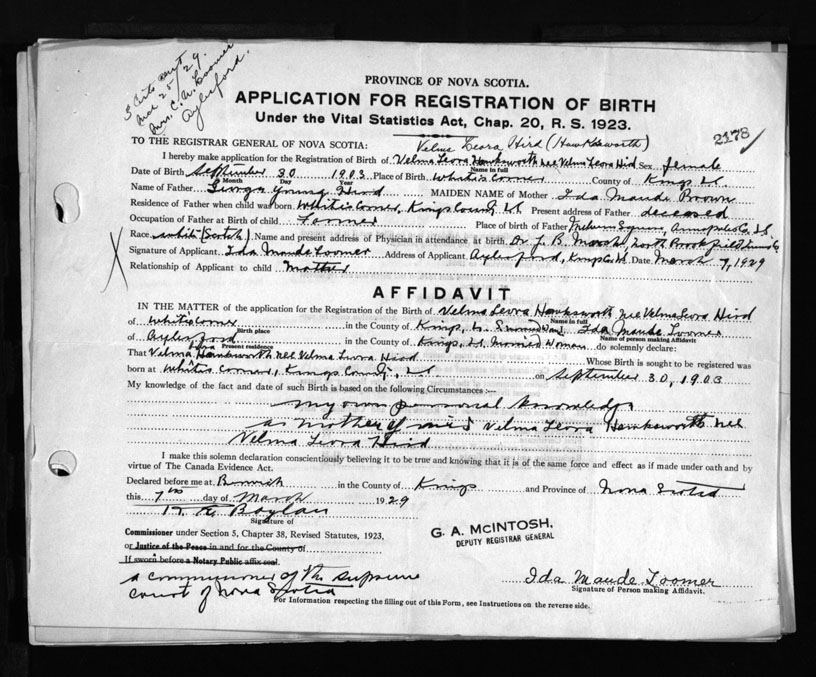 3 Certs sent
Mar 25/29.
Mrs. C. W. Loomer
Aylesford.
PROVINCE OF NOVA SCOTIA.
APPLICATION FOR REGISTRATION OF BIRTH
Under the Vital Statistics Act, Chap. 20, R. S. 1923.
2178
TO THE REGISTRAR GENERAL OF NOVA SCOTIA: Velma Leora Hird (Hawksworth)
I hereby make application for the Registration of Birth of Velma Leora Hawksworth nee Velma Leora Hird Sex female
Name in full
Date of Birth September 30 1903 Place of Birth White's Corner County of Kings N.S.
Month Day Year
Name of Father George Young Hird MAIDEN NAME of Mother Ida Maude Brown
Residence of Father when child was born White's Corner, Kings County N.S. Present address of Father deceased
Occupation of Father at Birth of child Farmer Place of birth of Father Melvern Square, Annapolis Co. N.S.
Race white (Scotch) Name and present address of Physician in attendance at birth Dr. J. B. North Brookfield
Signature of Applicant Ida Maude Loomer Address of Applicant Aylesford, Kings Co. N.S. Date March 7, 1929
Relationship of Applicant to child Mother
AFFIDAVIT
IN THE MATTER of the application for the Registration of the Birth of Velma Leora Hawksworth nee Velma Leora Hird
Name in full
of White's Corner in the County of Kings, N.S. Ida Maude Loomer
Birth place Name of person making Affidavit
of Aylesford in the County of Kings, N.S. Married Woman do solemnly declare:
Present residence
That Velma Hawksworth nee Velma Leora Hird Whose Birth is sought to be registered was
born at White's Corner, Kings County, N.S. on September 30, 1903
My knowledge of the fact and date of such Birth is based on the following Circumstances :—
my own personal knowledge
as mother of Mrs Velma Leora Hawksworth nee
Velma Leora Hird
I make this solemn declaration conscientiously believing it to be true and knowing that it is of the same force and effect as if made under oath and by
virtue of The Canada Evidence Act.
Declared before me at Berwick in the County of Kings and Province of Nova Scotia
this 7th day of March 1929
Signature of
Commissioner under Section 5, Chapter 38, Revised Statutes, 1923,
or Justice of the Peace in and for the County of
If sworn before a Notary Public affix seal.
a commissioner of the supreme
court of Nova Scotia
G. A. McINTOSH,
DEPUTY REGISTRAR GENERAL
Ida Maude Loomer
Signature of Person making Affidavit.
For Information respecting the filling out of this Form, see Instructions on the reverse side.